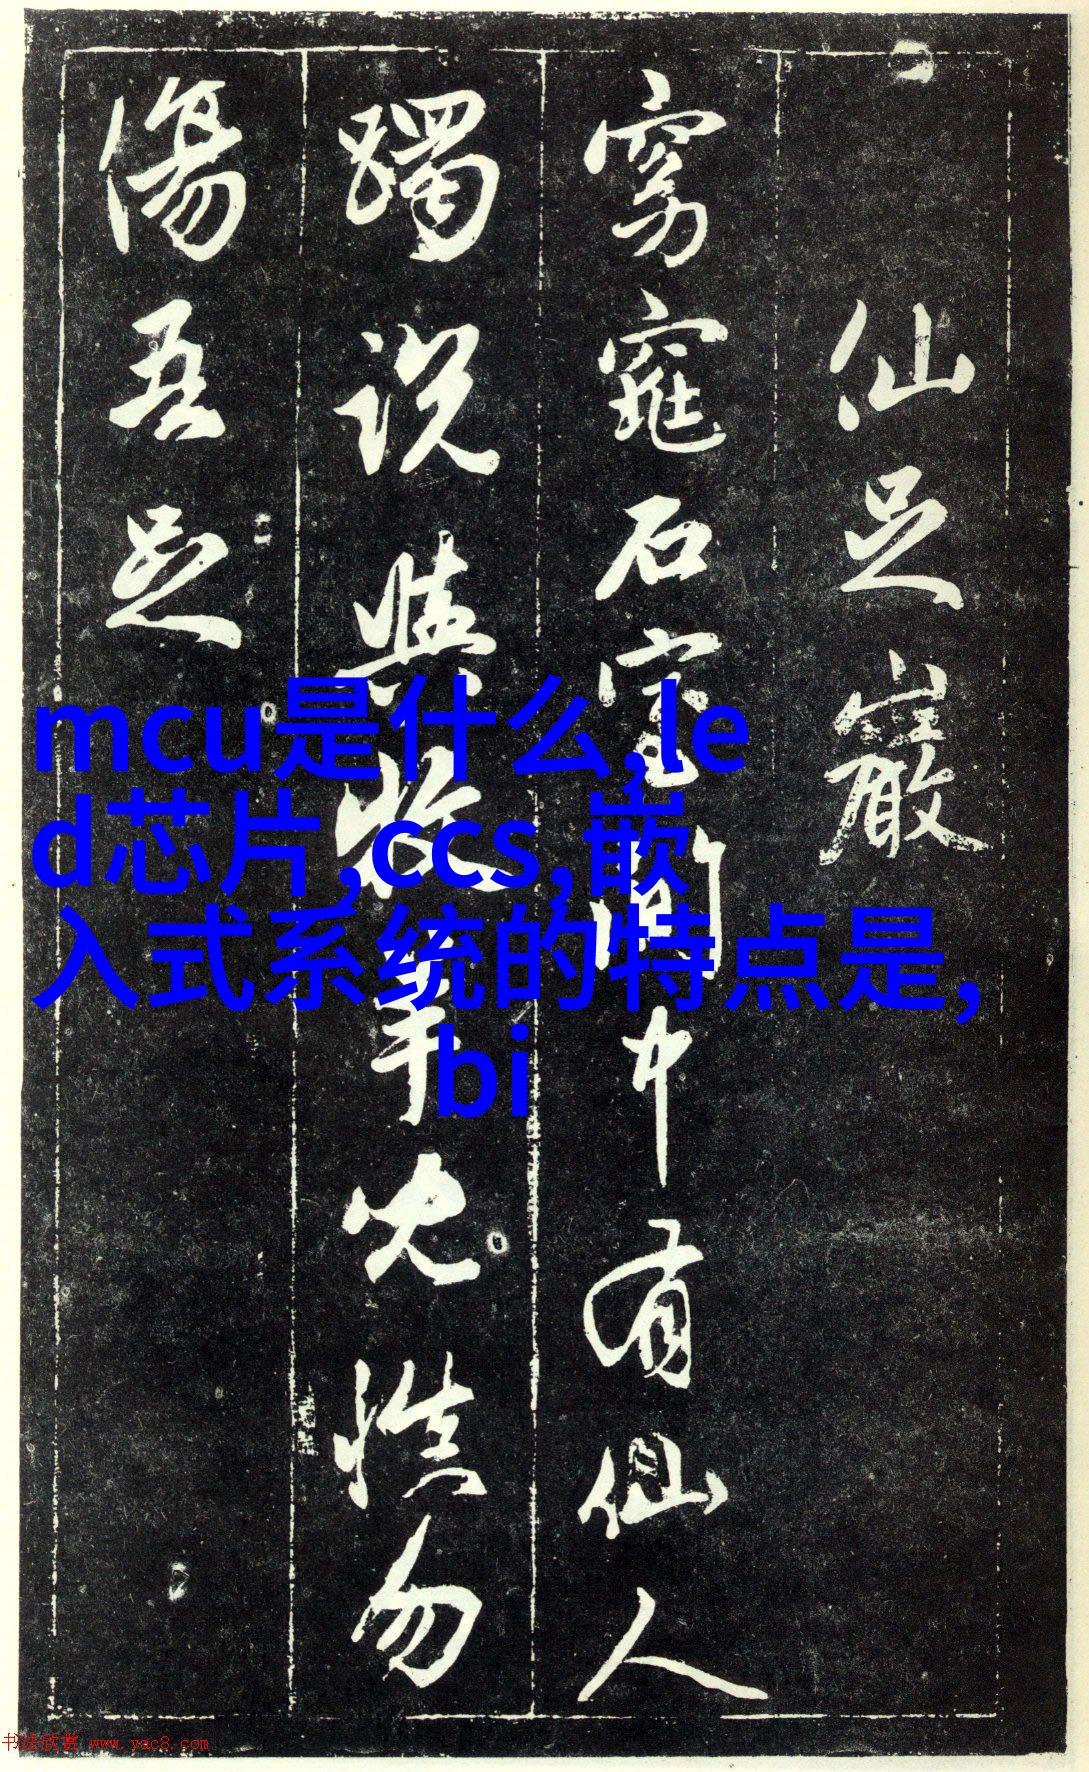 仙足巖
窈窕石室間中有仙人
躅說與牧羊兒慎勿
傷吾足
mcu是什么,le
d芯片,ccs,嵌
入式系统的特点是,
bi
书法欣赏 www.yac8.com